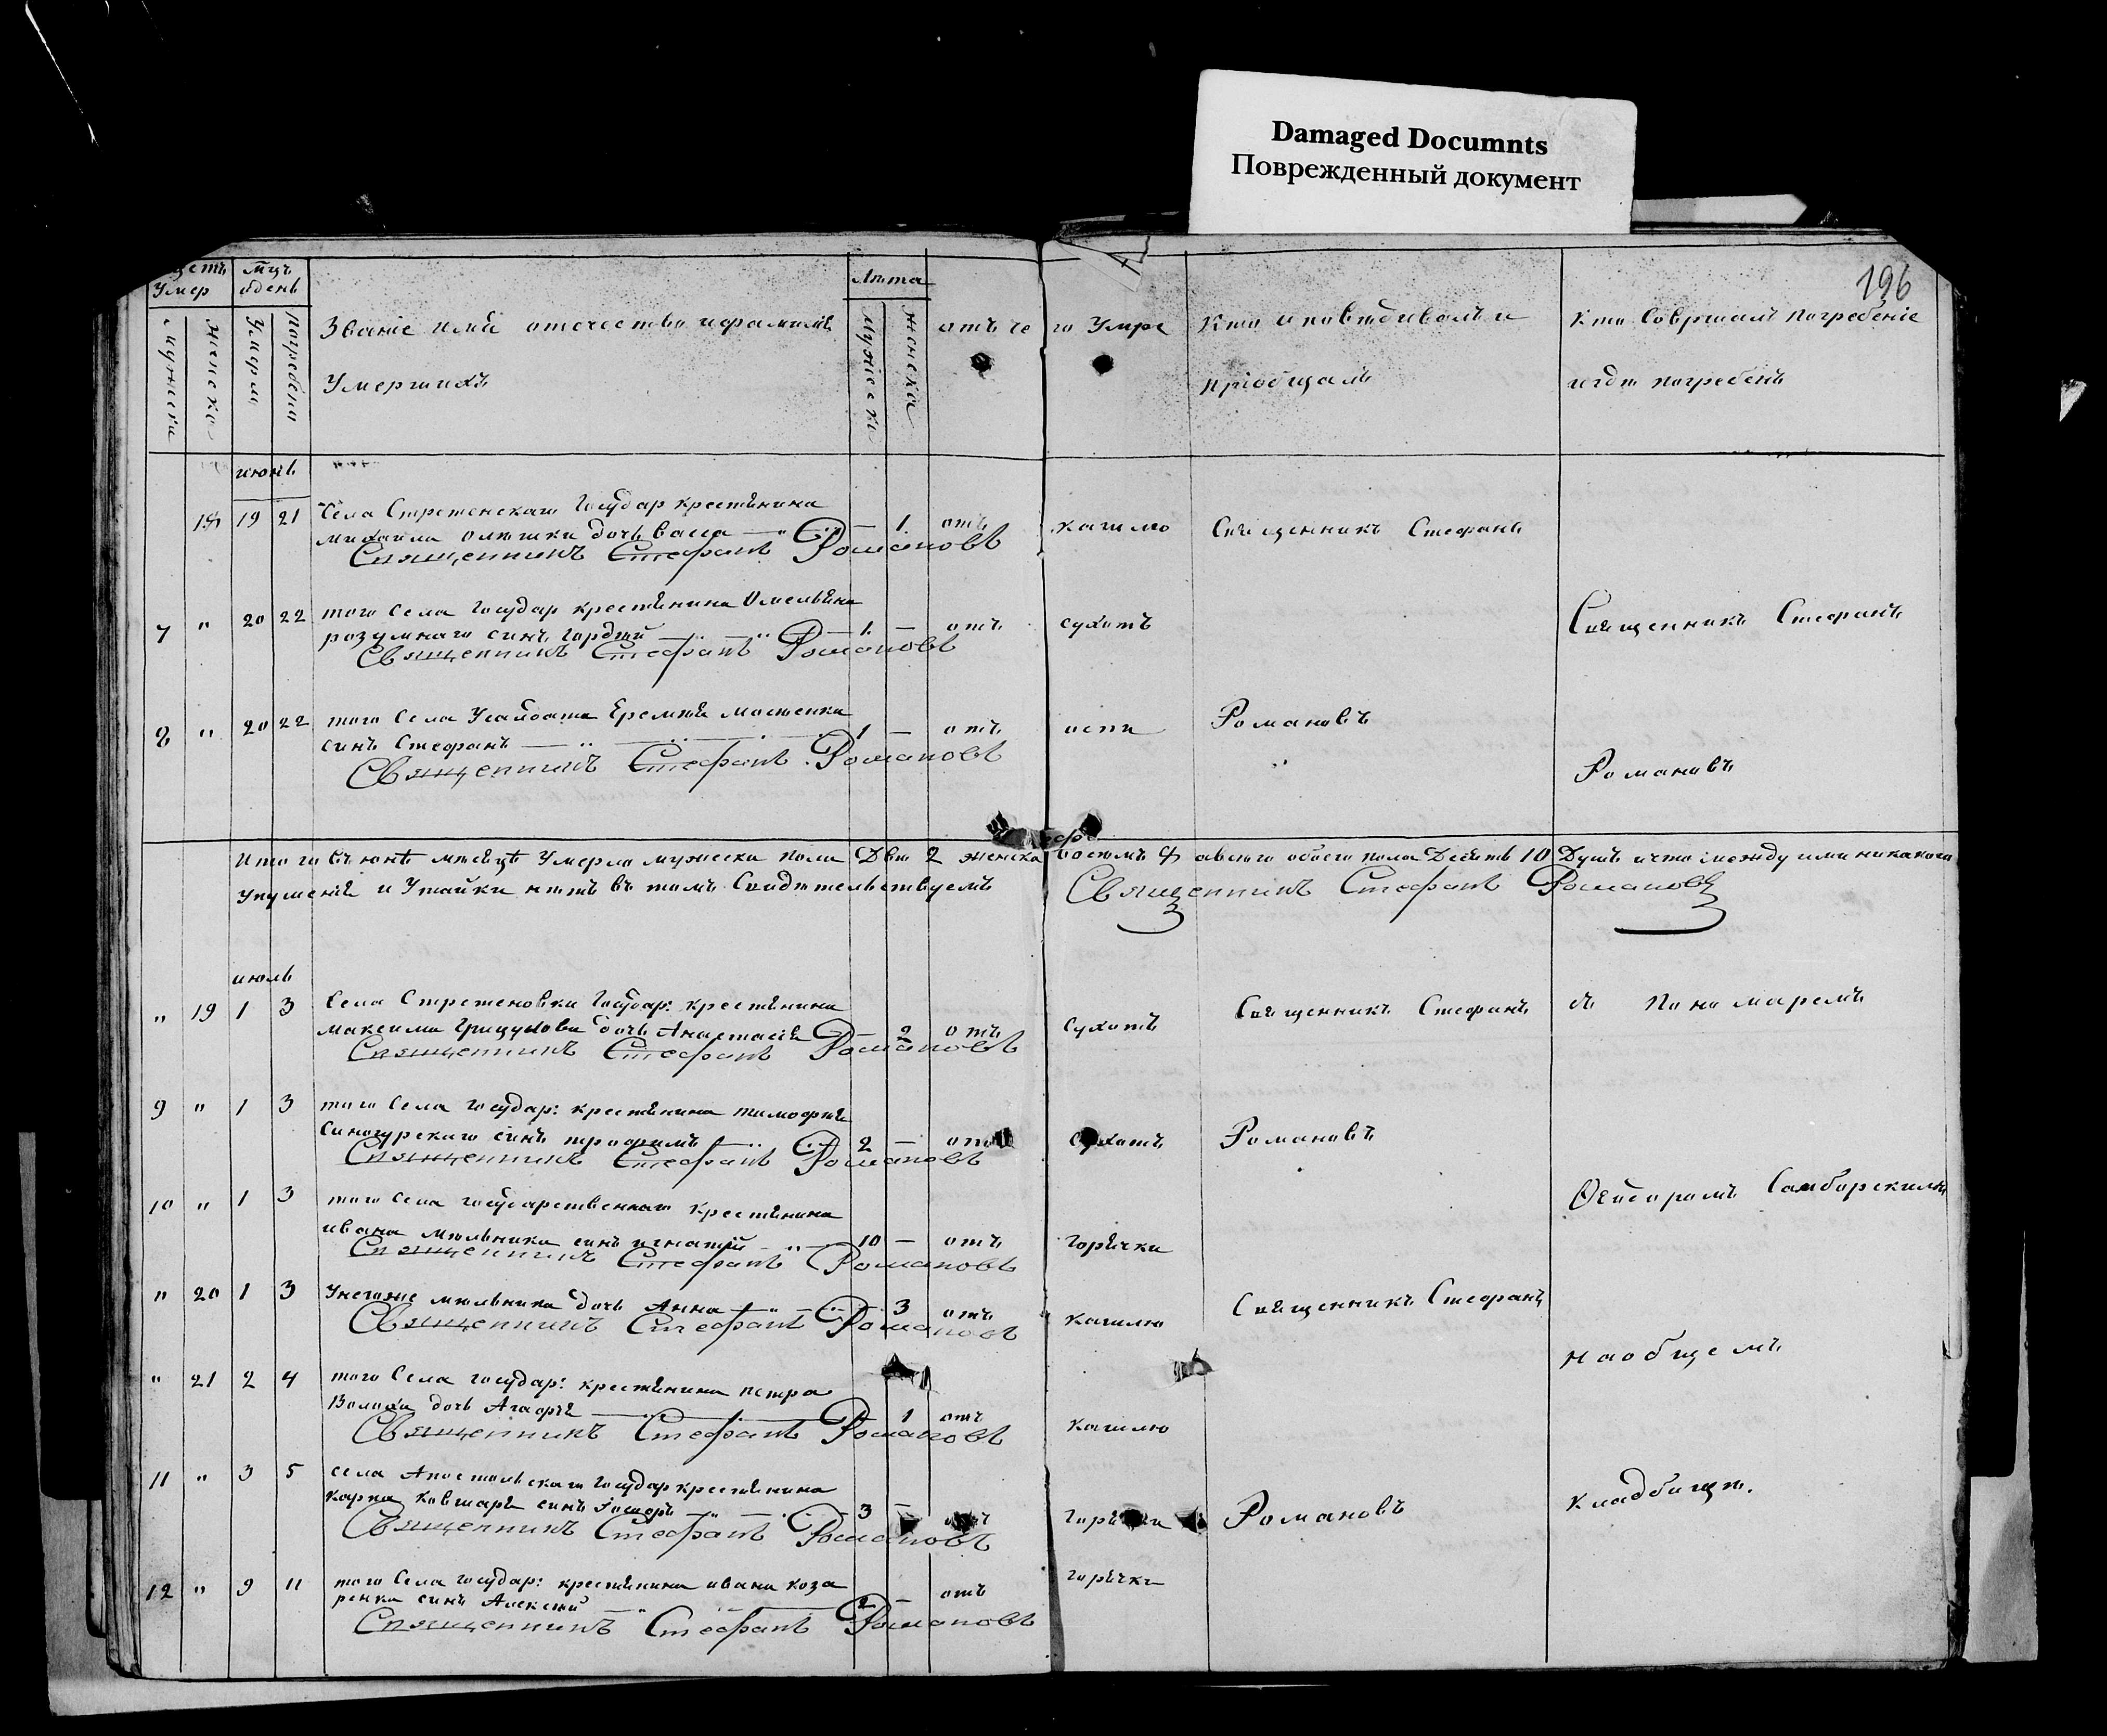 Damaged Documnts
Поврежденный документ
196
щетъ Умер
мцъ и день
Званіе имя отечество и фамилія Умершихъ
лѣта
отъ чего Умре
Кто исповѣдивалъ и пріобщалъ
Кто Совршалъ погребеніе и гдѣ погребенъ
мужеска
женска
Умерли
погребены
мужеска
женска
июнь
18 19 21 Села Стретенскаго Государ крестянина
Михаила дочь Васса — 1 отъ кашлю Священникъ Стефанъ
Священникъ Стефанъ Романовъ
7 " 20 22 того Села Государ крестянина Омельяна
розумнаго синъ Гордій 1 — отъ сухотъ Священникъ Стефанъ
Священникъ Стефанъ Романовъ
8 " 20 22 того Села Еремѣя
синъ Стефанъ 1 — отъ оспи Романовъ
Священникъ Стефанъ Романовъ
Романовъ
Итого въ юнѣ мѣсяцѣ Умерло мужеска пола Два 2 женска восемъ 8 а всего обоего пола Десять 10 Душъ и что между ими никакого
упущенія и Утайки нѣтъ въ томъ Свидѣтельствуемъ Священникъ Стефанъ Романовъ
июль
" 19 1 3 Села Стретеновки Государ: крестянина
Максима дочь Анастасія — 2 отъ Сухотъ Священникъ Стефанъ съ Пономаремъ
Священникъ Стефанъ Романовъ
9 " 1 3 того Села государ: крестянина тимофея
Синогурскаго синъ трофимъ 2 — отъ Сухотъ Романовъ
Священникъ Стефанъ Романовъ
10 " 1 3 того Села государственнаго крестянина
ивана мельника синъ игнатій 10 — отъ горячки Ѳеодоромъ Самборскимъ
Священникъ Стефанъ Романовъ
" 20 1 3 Унегоже мельника дочь Анна — 3 отъ кашлю Священникъ Стефанъ
Священникъ Стефанъ Романовъ
" 21 2 4 того Села государ: крестянина петра
Волоха дочь Агафія — 1 отъ кашлю на общемъ
Священникъ Стефанъ Романовъ
11 " 3 5 села Апостольскаго Государ крестянина
Карпа Ковшаря синъ 3 — отъ горячки Романовъ кладбищѣ.
Священникъ Стефанъ Романовъ
12 " 9 11 того Села государ: крестянина ивана коза
ренка синъ Алексѣй 2 — отъ горячки
Священникъ Стефанъ Романовъ